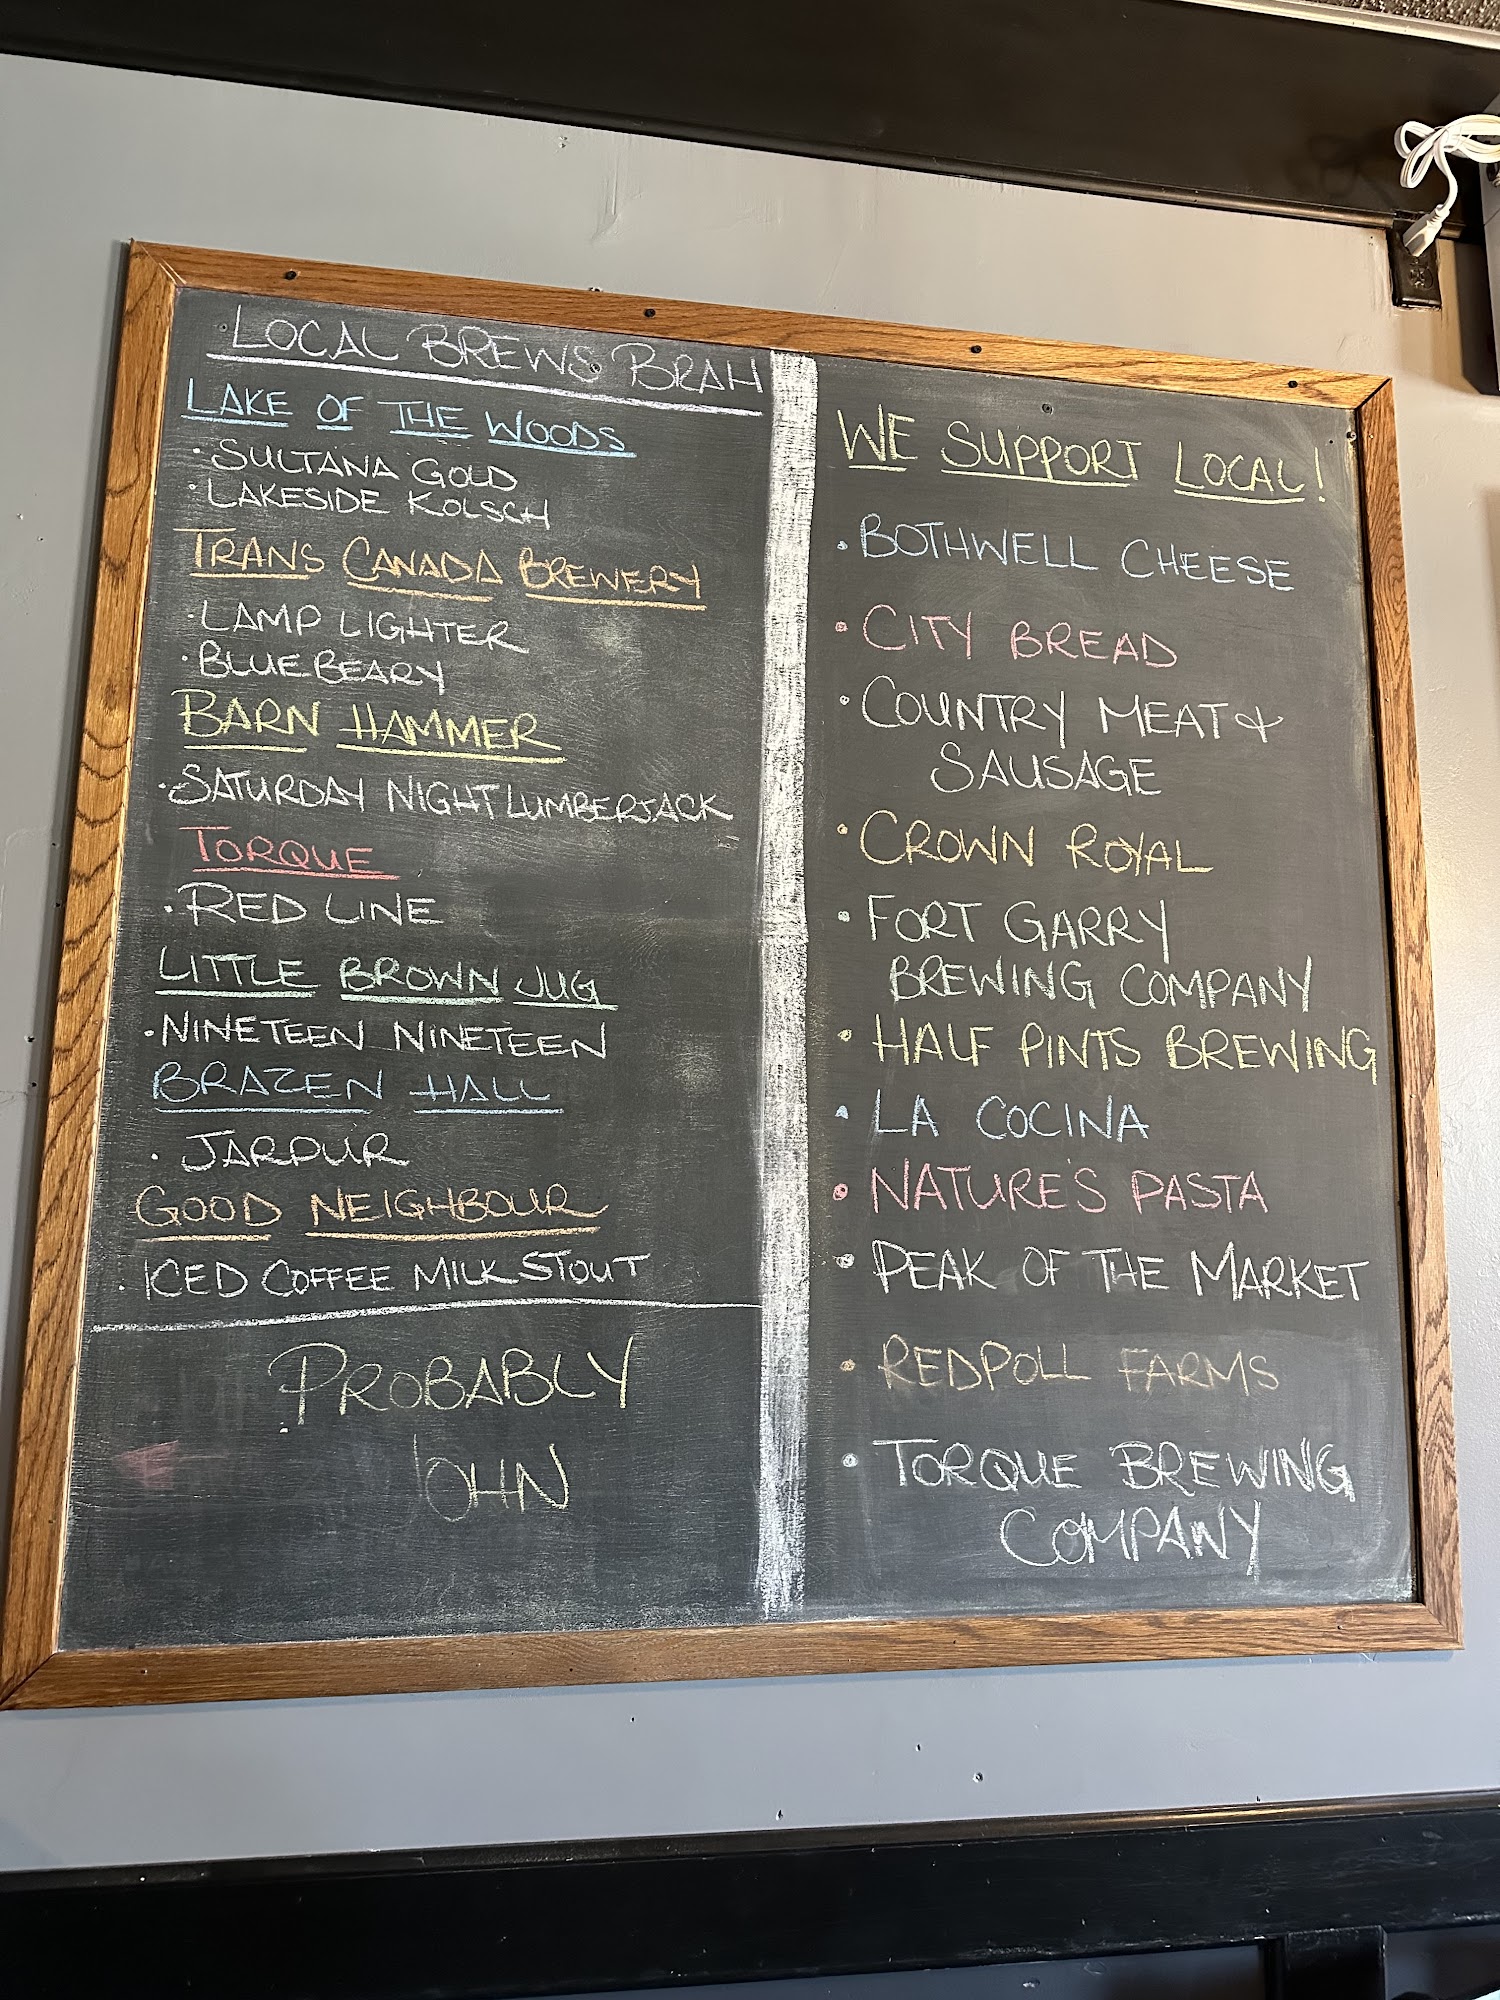 LOCAL BREWS BRAH
LAKE OF THE WOODS
· SULTANA GOLD
· LAKESIDE KOLSCH
TRANS CANADA BREWERY
· LAMP LIGHTER
· BLUE BEARY
BARN HAMMER
· SATURDAY NIGHT LUMBERJACK
TORQUE
· RED LINE
LITTLE BROWN JUG
· NINETEEN NINETEEN
BRAZEN HALL
· JARPUR
GOOD NEIGHBOUR
· ICED COFFEE MILK STOUT
PROBABLY
JOHN
WE SUPPORT LOCAL!
· BOTHWELL CHEESE
· CITY BREAD
· COUNTRY MEAT &
SAUSAGE
· CROWN ROYAL
· FORT GARRY
BREWING COMPANY
· HALF PINTS BREWING
· LA COCINA
· NATURE'S PASTA
· PEAK OF THE MARKET
· REDPOLL FARMS
· TORQUE BREWING
COMPANY